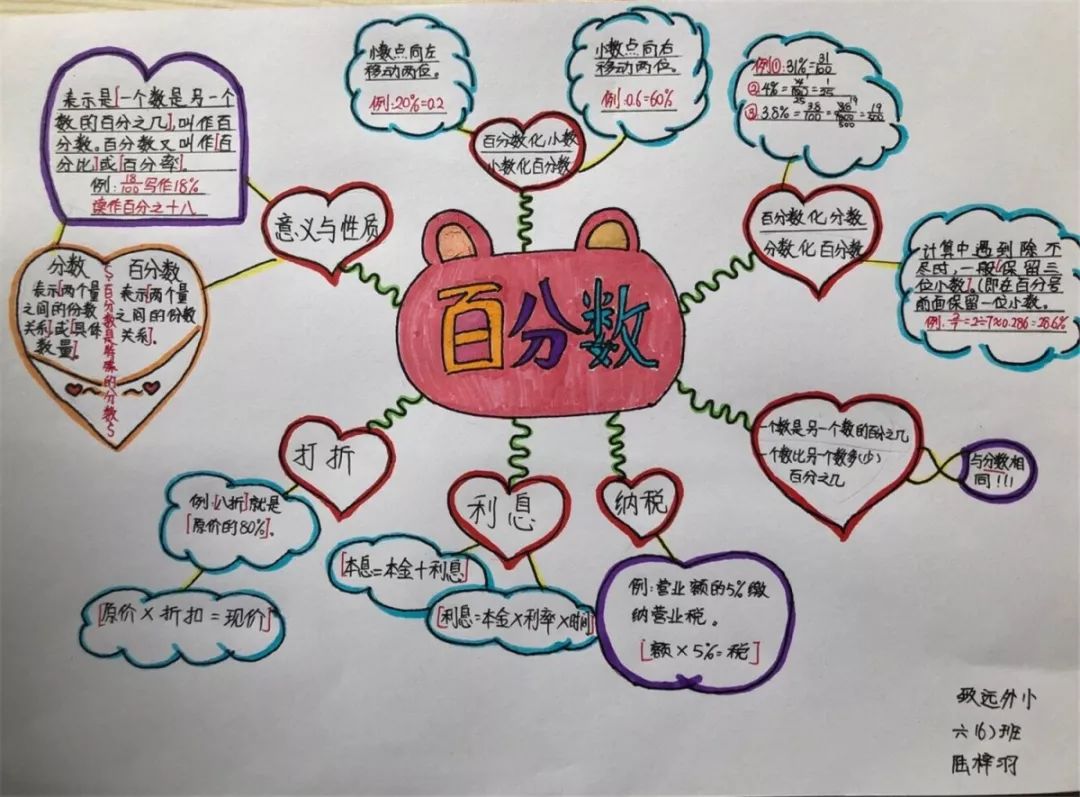 百分数
意义与性质
表示是[一个数是另一个
数的百分之几],叫作百
分数。百分数又叫作[百
分比]或[百分率]。
例:18/100写作18%
读作百分之十八
分数
表示[两个量
之间的份数
关系]或[具体
数量]。
百分数是特殊的分数
百分数
表示[两个量
之间的份数
关系]。
百分数化小数
小数化百分数
小数点向左
移动两位。
例:20%=0.2
小数点向右
移动两位。
例:0.6=60%
百分数化分数
分数化百分数
例①:31%=31/100
②4%=4/100=1/25
③3.8%=3.8/100=38/1000=19/500
计算中遇到除不
尽时,一般[保留三
位小数]。(即在百分号
前面保留一位小数。
例:2/7=2÷7≈0.286=28.6%
一个数是另一个数的百分之几
一个数比另一个数多(少)
百分之几
与分数相
同!!!
打折
例:[八折]就是
[原价的80%]。
[原价×折扣=现价]
利息
[本息=本金+利息]
[利息=本金×利率×时间]
纳税
例:营业额的5%缴
纳营业税。
[额×5%=税]
致远外小
六(6)班
陆梓羽